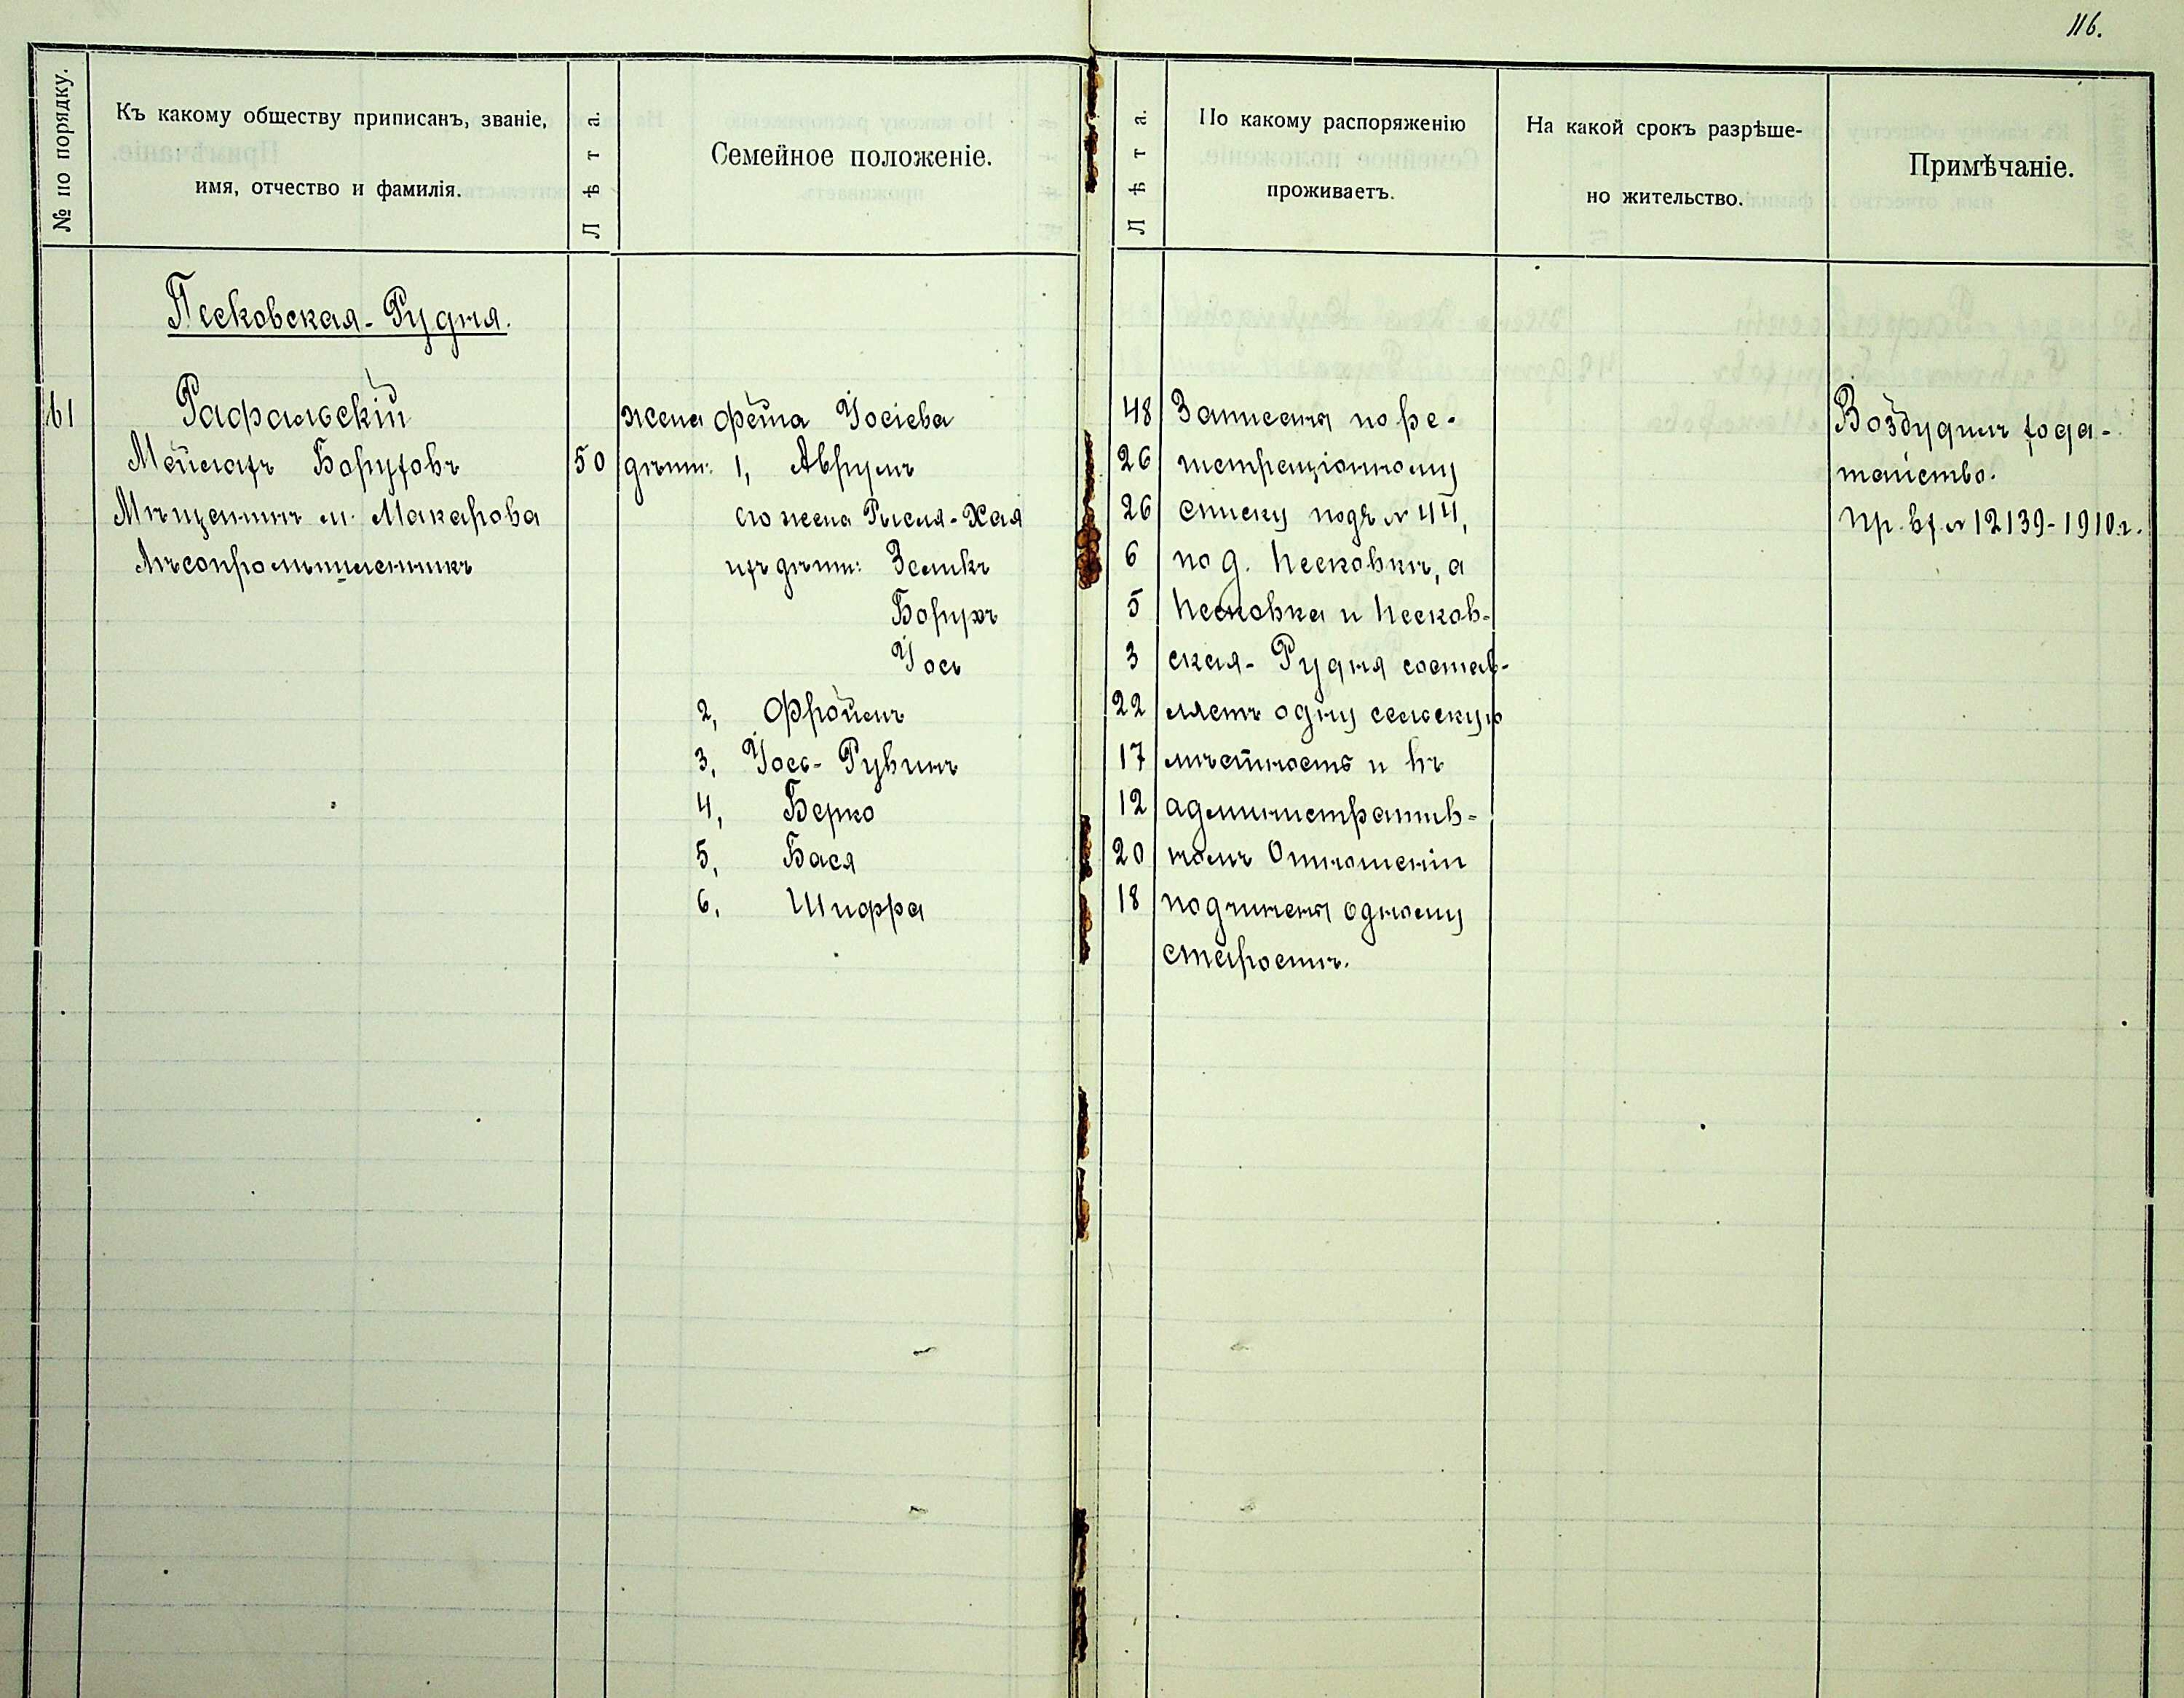 116.
№ по порядку.
Къ какому обществу приписанъ, званіе,
имя, отчество и фамилія.
Лѣта.
Семейное положеніе.
Лѣта.
По какому распоряженію
проживаетъ.
На какой срокъ разрѣше-
но жительство.
Примѣчаніе.
Песковская-Рудня.
161
Рафальскій
Мейлахъ Боруховъ
Мѣщанинъ м. Макарова
Лѣсопромышленникъ
50
жена Фейга Іосіева
дѣти: 1, Аврумъ
его жена Рысля-Хая
ихъ дѣти: Зеликъ
Борухъ
Іось
2, Фроимъ
3, Іось-Рувинъ
4, Берко
5, Бася
6, Шифра
48
26
26
6
5
3
22
17
12
20
18
Записаны по ре-
гистраціонному
списку подъ №
по д. Песковкѣ, а
Песковка и Песков-
ская-Рудня состав-
ляетъ одну сельскую
мѣстность и въ
административ-
номъ Отношеніи
подчинены одному
старостѣ.
Возбудилъ хода-
тайство.
пр. вх. № 12139-1910 г.